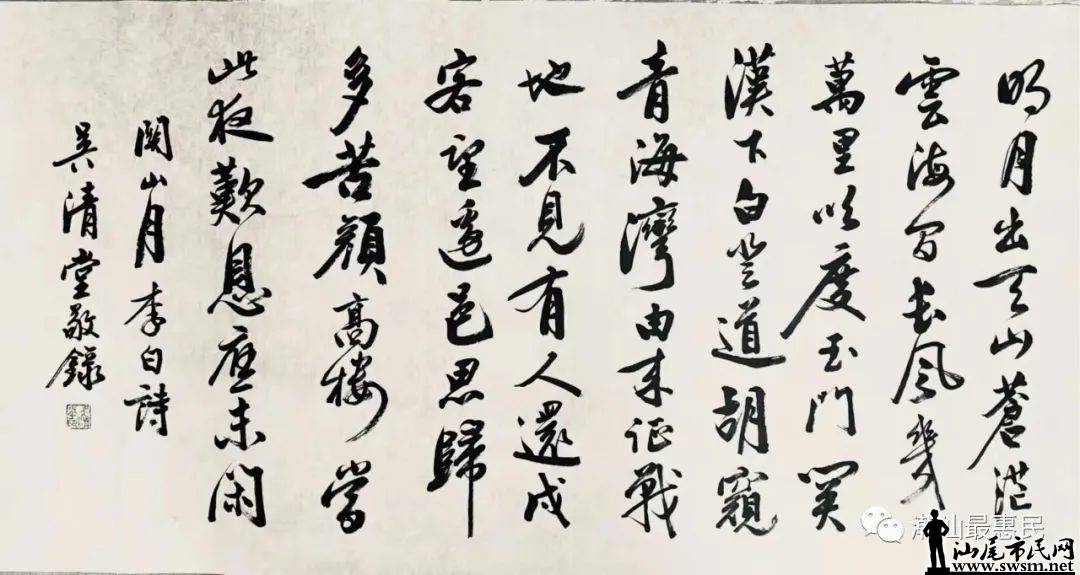 明月出天山蒼茫
雲海間長風幾
萬里吹度玉門關
漢下白登道胡窺
青海灣由来征戰
地不見有人還戍
客望邊邑思歸
多苦顏高樓當
此夜歎息應未閑
關山月 李白詩
吳清堂敬錄
潮汕最惠民
汕尾市民网
www.swsm.net